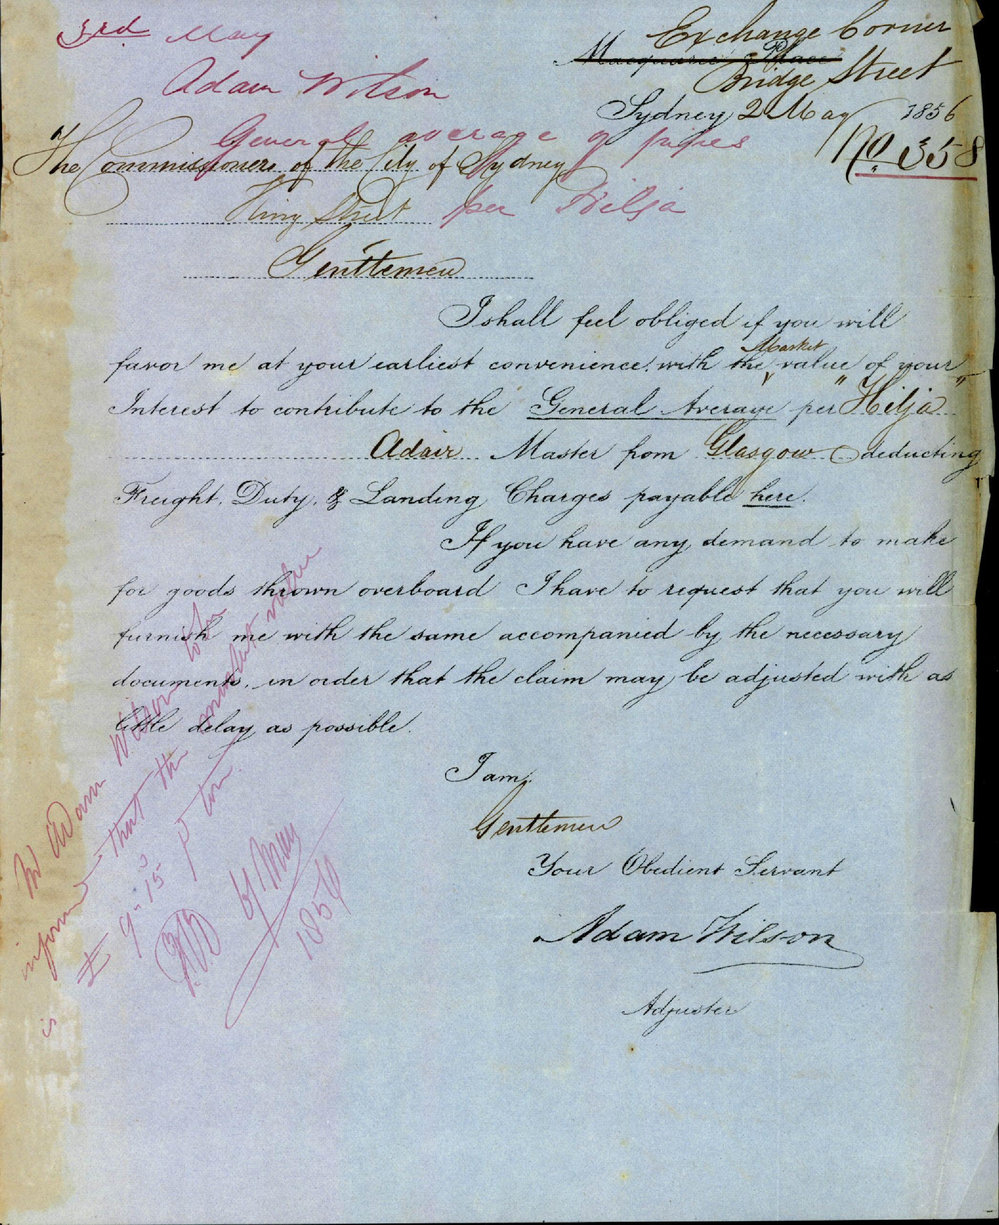 3rd May
Adam Wilson
General average of pipes
per Hilja
Exchange Corner
Macquarie Place
Bridge Street
Sydney 2 May 1856
No. 358
The Commissioners of the City of Sydney
King Street
Gentlemen
I shall feel obliged if you will
favor me at your earliest convenience, with the Market value of your
Interest to contribute to the General Average per "Hilja"
Adair Master from Glasgow deducting
Freight, Duty, & Landing Charges payable here.
If you have any demand to make
for goods thrown overboard I have to request that you will
furnish me with the same accompanied by the necessary
documents, in order that the claim may be adjusted with as
little delay as possible.
I am,
Gentlemen
Your Obedient Servant
Adam Wilson
Adjuster
Mr Adam Wilson to be
informed that the market value
is £9-15 p ton
6/ May
1856